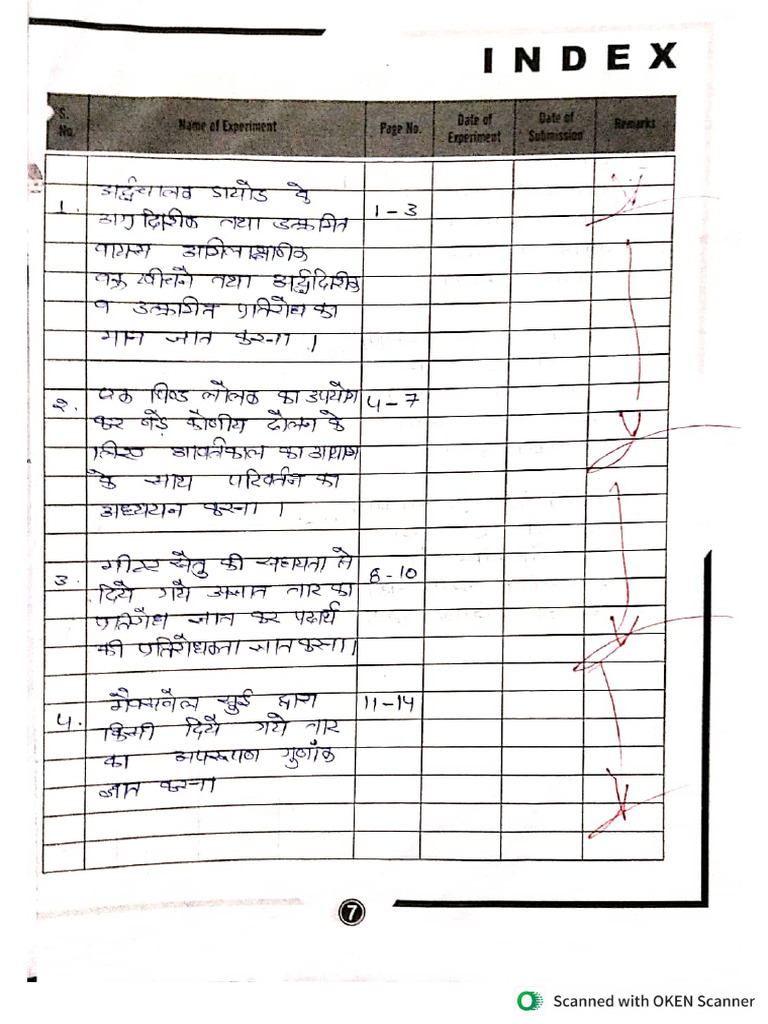 INDEX
S. No. Name of Experiment Page No. Date of Experiment Date of Submission Remarks
1. अर्द्धचालक डायोड के 1-3
अग्रदिशिक तथा उत्क्रमित
वायस अभिलाक्षणिक
वक्र खीचनै तथा अर्द्धदिशिक
व उत्क्रमित प्रतिरोध का
मान ज्ञात करना ।
2. एक पिण्ड लौलक का उपयोग 4-7
कर बड़े कोणीय दौलन के
लिए आवर्तकाल का आयाम
के साथ परिवर्तन का
अध्ययन करना ।
3. मीटर सैतु की सहायता से 8-10
दियै गयै अज्ञात तार का
प्रतिरोध ज्ञात कर पदार्थ
की प्रतिरोधकता ज्ञात करना।
4. मैक्सवैल सुई द्वारा 11-14
किसी दियै गयै तार
का अपरूपण गुणाँक
ज्ञात करना
7
Scanned with OKEN Scanner